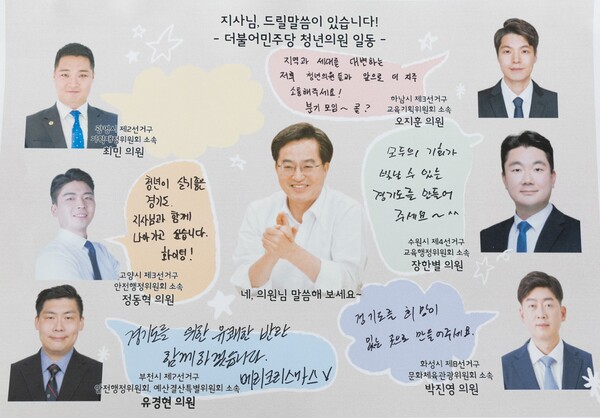 지사님, 드릴말씀이 있습니다!
- 더불어민주당 청년의원 일동 -
광명시 제2선거구
기획재정위원회 소속
최민 의원
지역과 세대를 대변하는
저희 청년의원들과 앞으로 더 자주
소통해주세요!
분기 모임~ 콜?
하남시 제3선거구
교육기획위원회 소속
오지훈 의원
청년이 살기좋은
경기도.
지사님과 함께
나아가고 싶습니다.
화이팅!
고양시 제3선거구
안전행정위원회 소속
정동혁 의원
모두의 기회가
빛날 수 있는
경기도를 만들어
주세요~ ^^
수원시 제4선거구
교육행정위원회 소속
장한별 의원
네, 의원님 말씀해 보세요~
경기도를 위한 유쾌한 반란
함께하겠습니다.
메리크리스마스 V
부천시 제7선거구
안전행정위원회, 예산결산특별위원회 소속
유경현 의원
경기도를 희망이
있는 곳으로 만들어주세요.
화성시 제8선거구
문화체육관광위원회 소속
박진영 의원